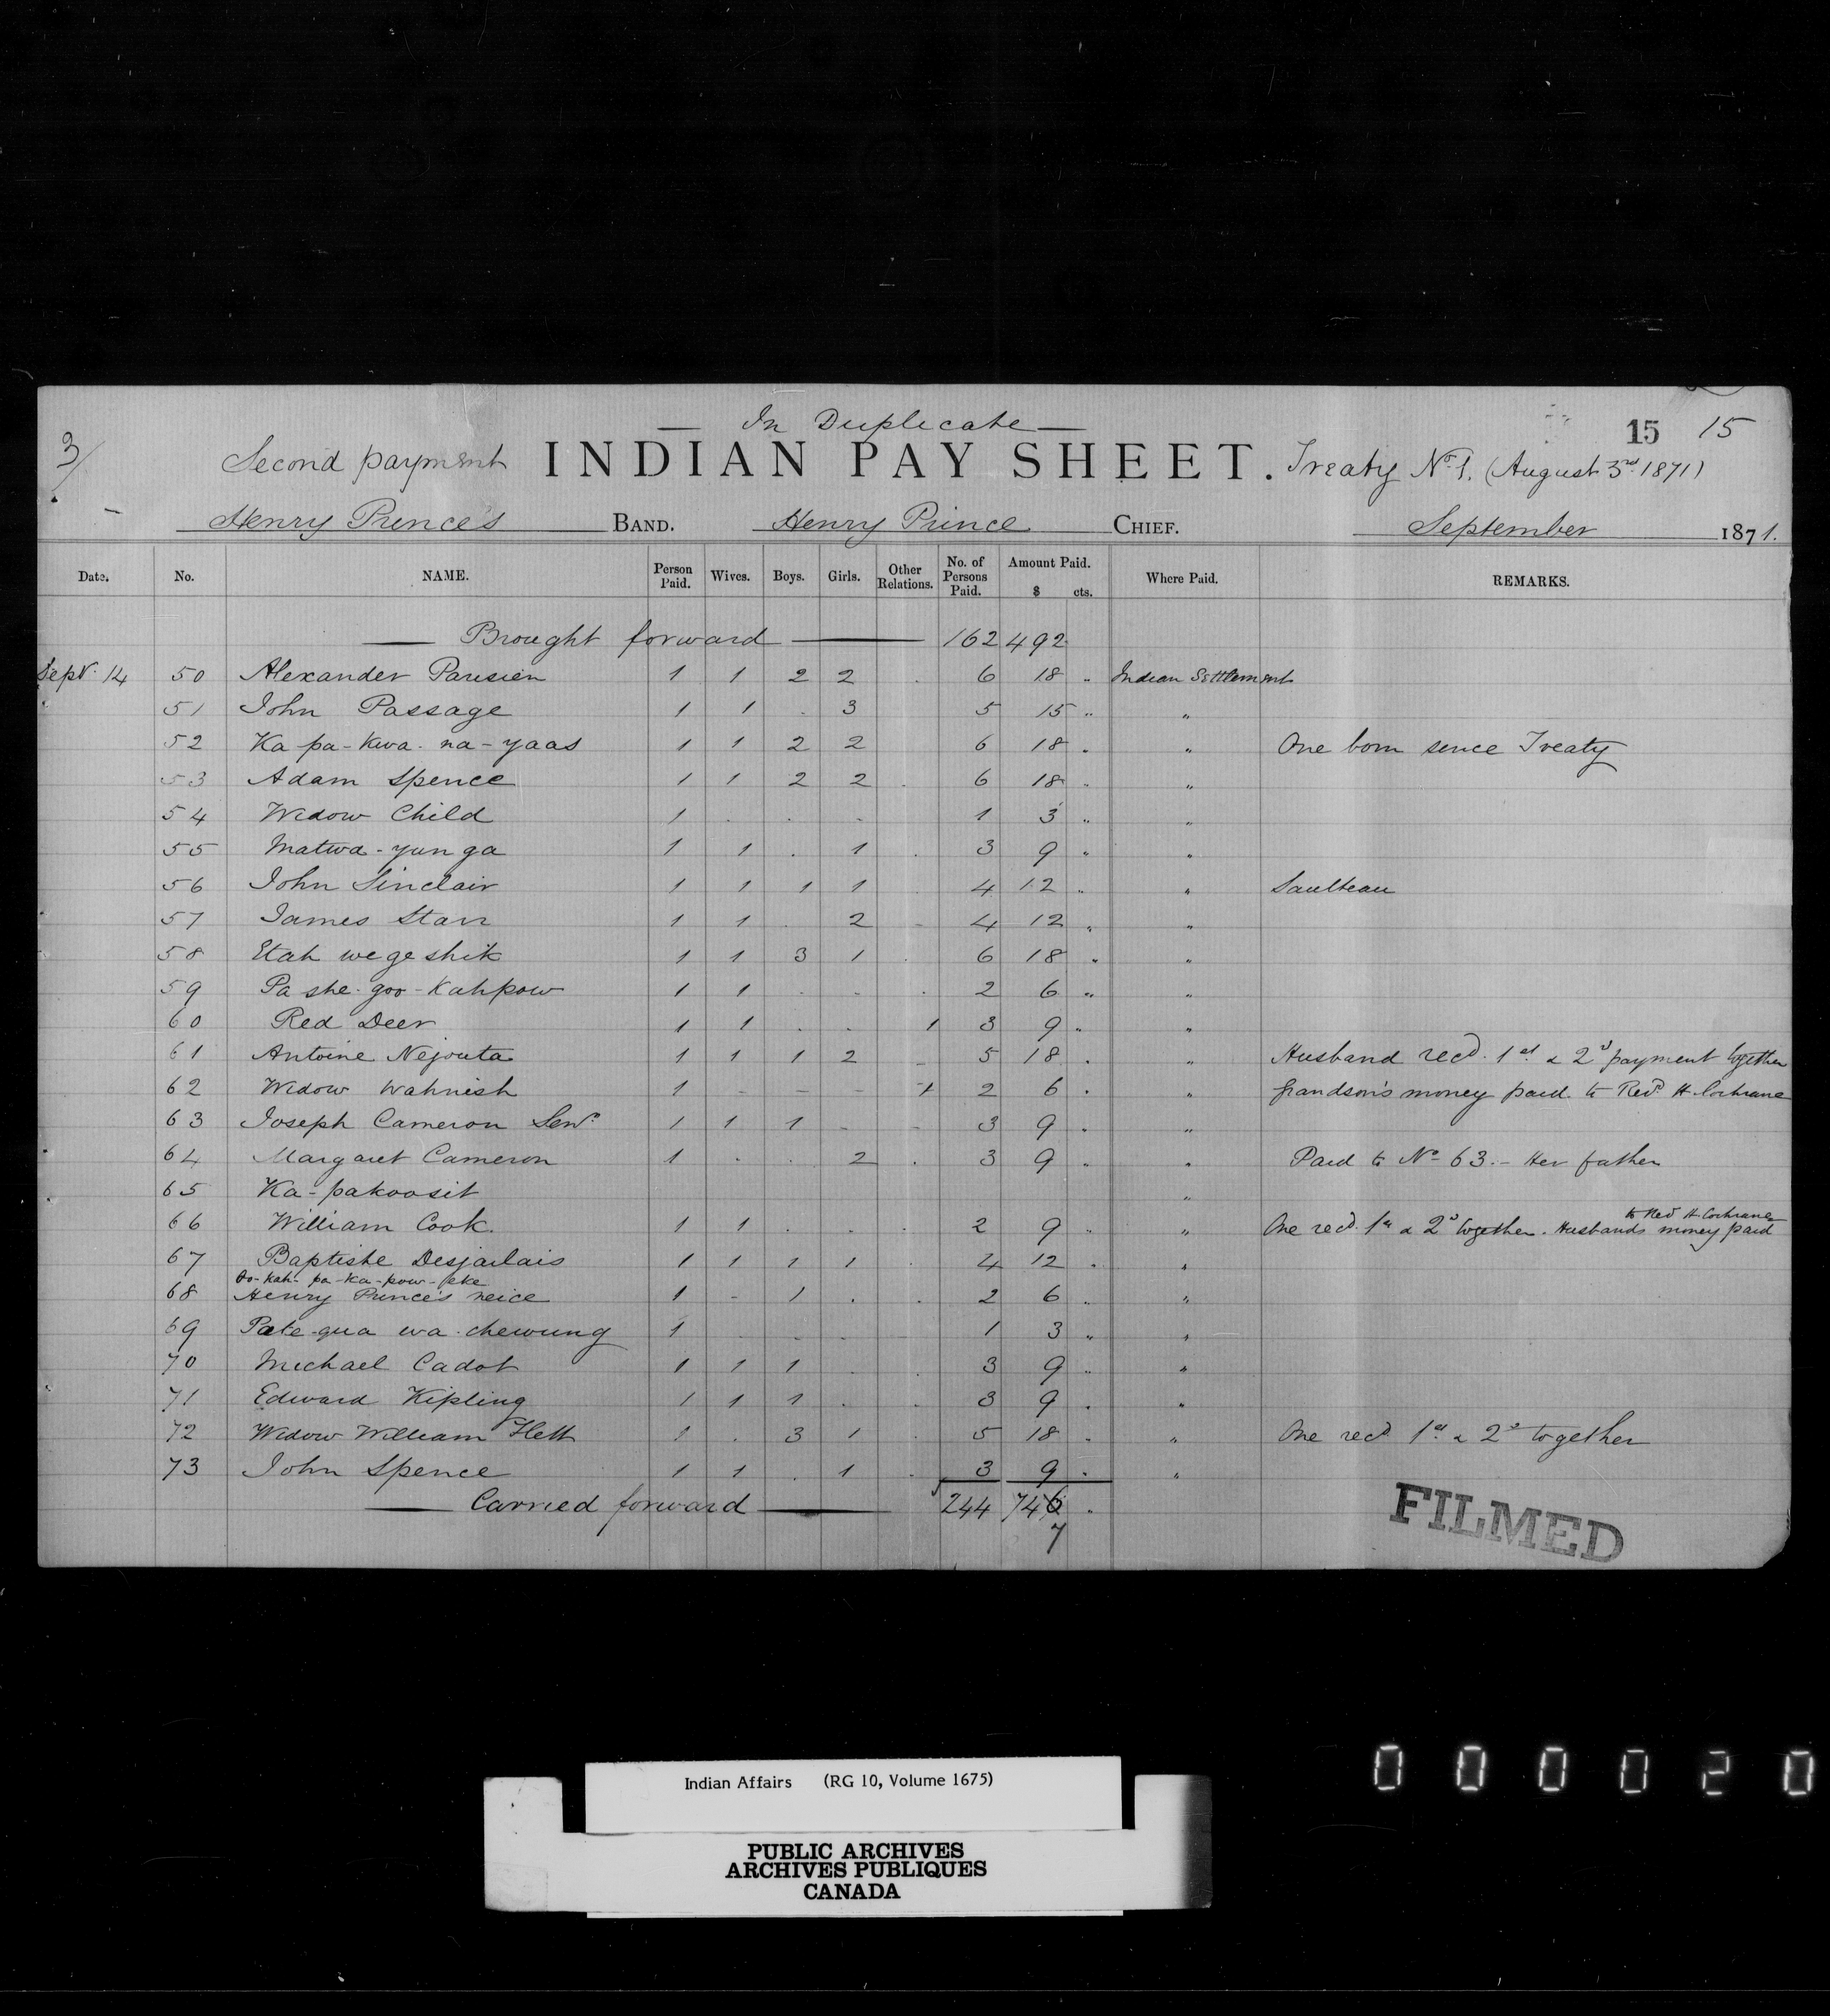 — In Duplicate —
15 15
3/ Second payment INDIAN PAY SHEET. Treaty No 1. (August 3rd 1871)
Henry Prince's BAND. Henry Prince CHIEF. September 1871.
Date. No. NAME. Person Paid. Wives. Boys. Girls. Other Relations. No. of Persons Paid. Amount Paid. $ cts. Where Paid. REMARKS.
Brought forward 162 492
Sept. 14 50 Alexander Parisien 1 1 2 2 . 6 18 " Indian Settlement
51 John Passage 1 1 . 3 5 15 " "
52 Ka-pa-kwa-na-yaas 1 1 2 2 6 18 . " One born sence Treaty
53 Adam Spence 1 1 2 2 . 6 18 . "
54 Widow Child 1 . . . 1 3 " "
55 Matwa-yunga 1 1 . 1 . 3 9 " "
56 John Sinclair 1 1 1 1 4 12 " " Saulteau
57 James Starr 1 1 . 2 - 4 12 " "
58 Etah we ge shik 1 1 3 1 . 6 18 " "
59 Pa she-goo-Kahpow 1 1 . . . 2 6 " "
60 Red Deer 1 1 . . 1 3 9 " "
61 Antoine Nejouta 1 1 1 2 - 5 18 . " Husband recd. 1st & 2d payment together
62 Widow Wahnish 1 - - - 1 2 6 . " grandson's money paid to Revd H. Cochrane
63 Joseph Cameron Senr. 1 1 1 - - 3 9 . "
64 Margaret Cameron 1 . . 2 . 3 9 " " Paid to No 63.- Her father
65 Ka-pakoosit "
66 William Cook. 1 1 . . . 2 9 " " One recd. 1st & 2d together. Husbands money paid to Revd H. Cochrane
67 Baptishe Desjarlais 1 1 1 1 . 4 12 . "
68 Henry Prince's neice 1 - 1 . . 2 6 " "
69 Pate-qua wa-chewung 1 . . . 1 3 " "
70 Michael Cadot 1 1 1 . . 3 9 " "
71 Edward Kipling 1 1 1 . . 3 9 . "
72 Widow William Hett 1 . 3 1 . 5 18 . " One recd 1st & 2d together
73 John Spence 1 1 . 1 . 3 9 . "
Carried forward 244 746 .
7
FILMED
Indian Affairs (RG 10, Volume 1675)
PUBLIC ARCHIVES
ARCHIVES PUBLIQUES
CANADA
000020